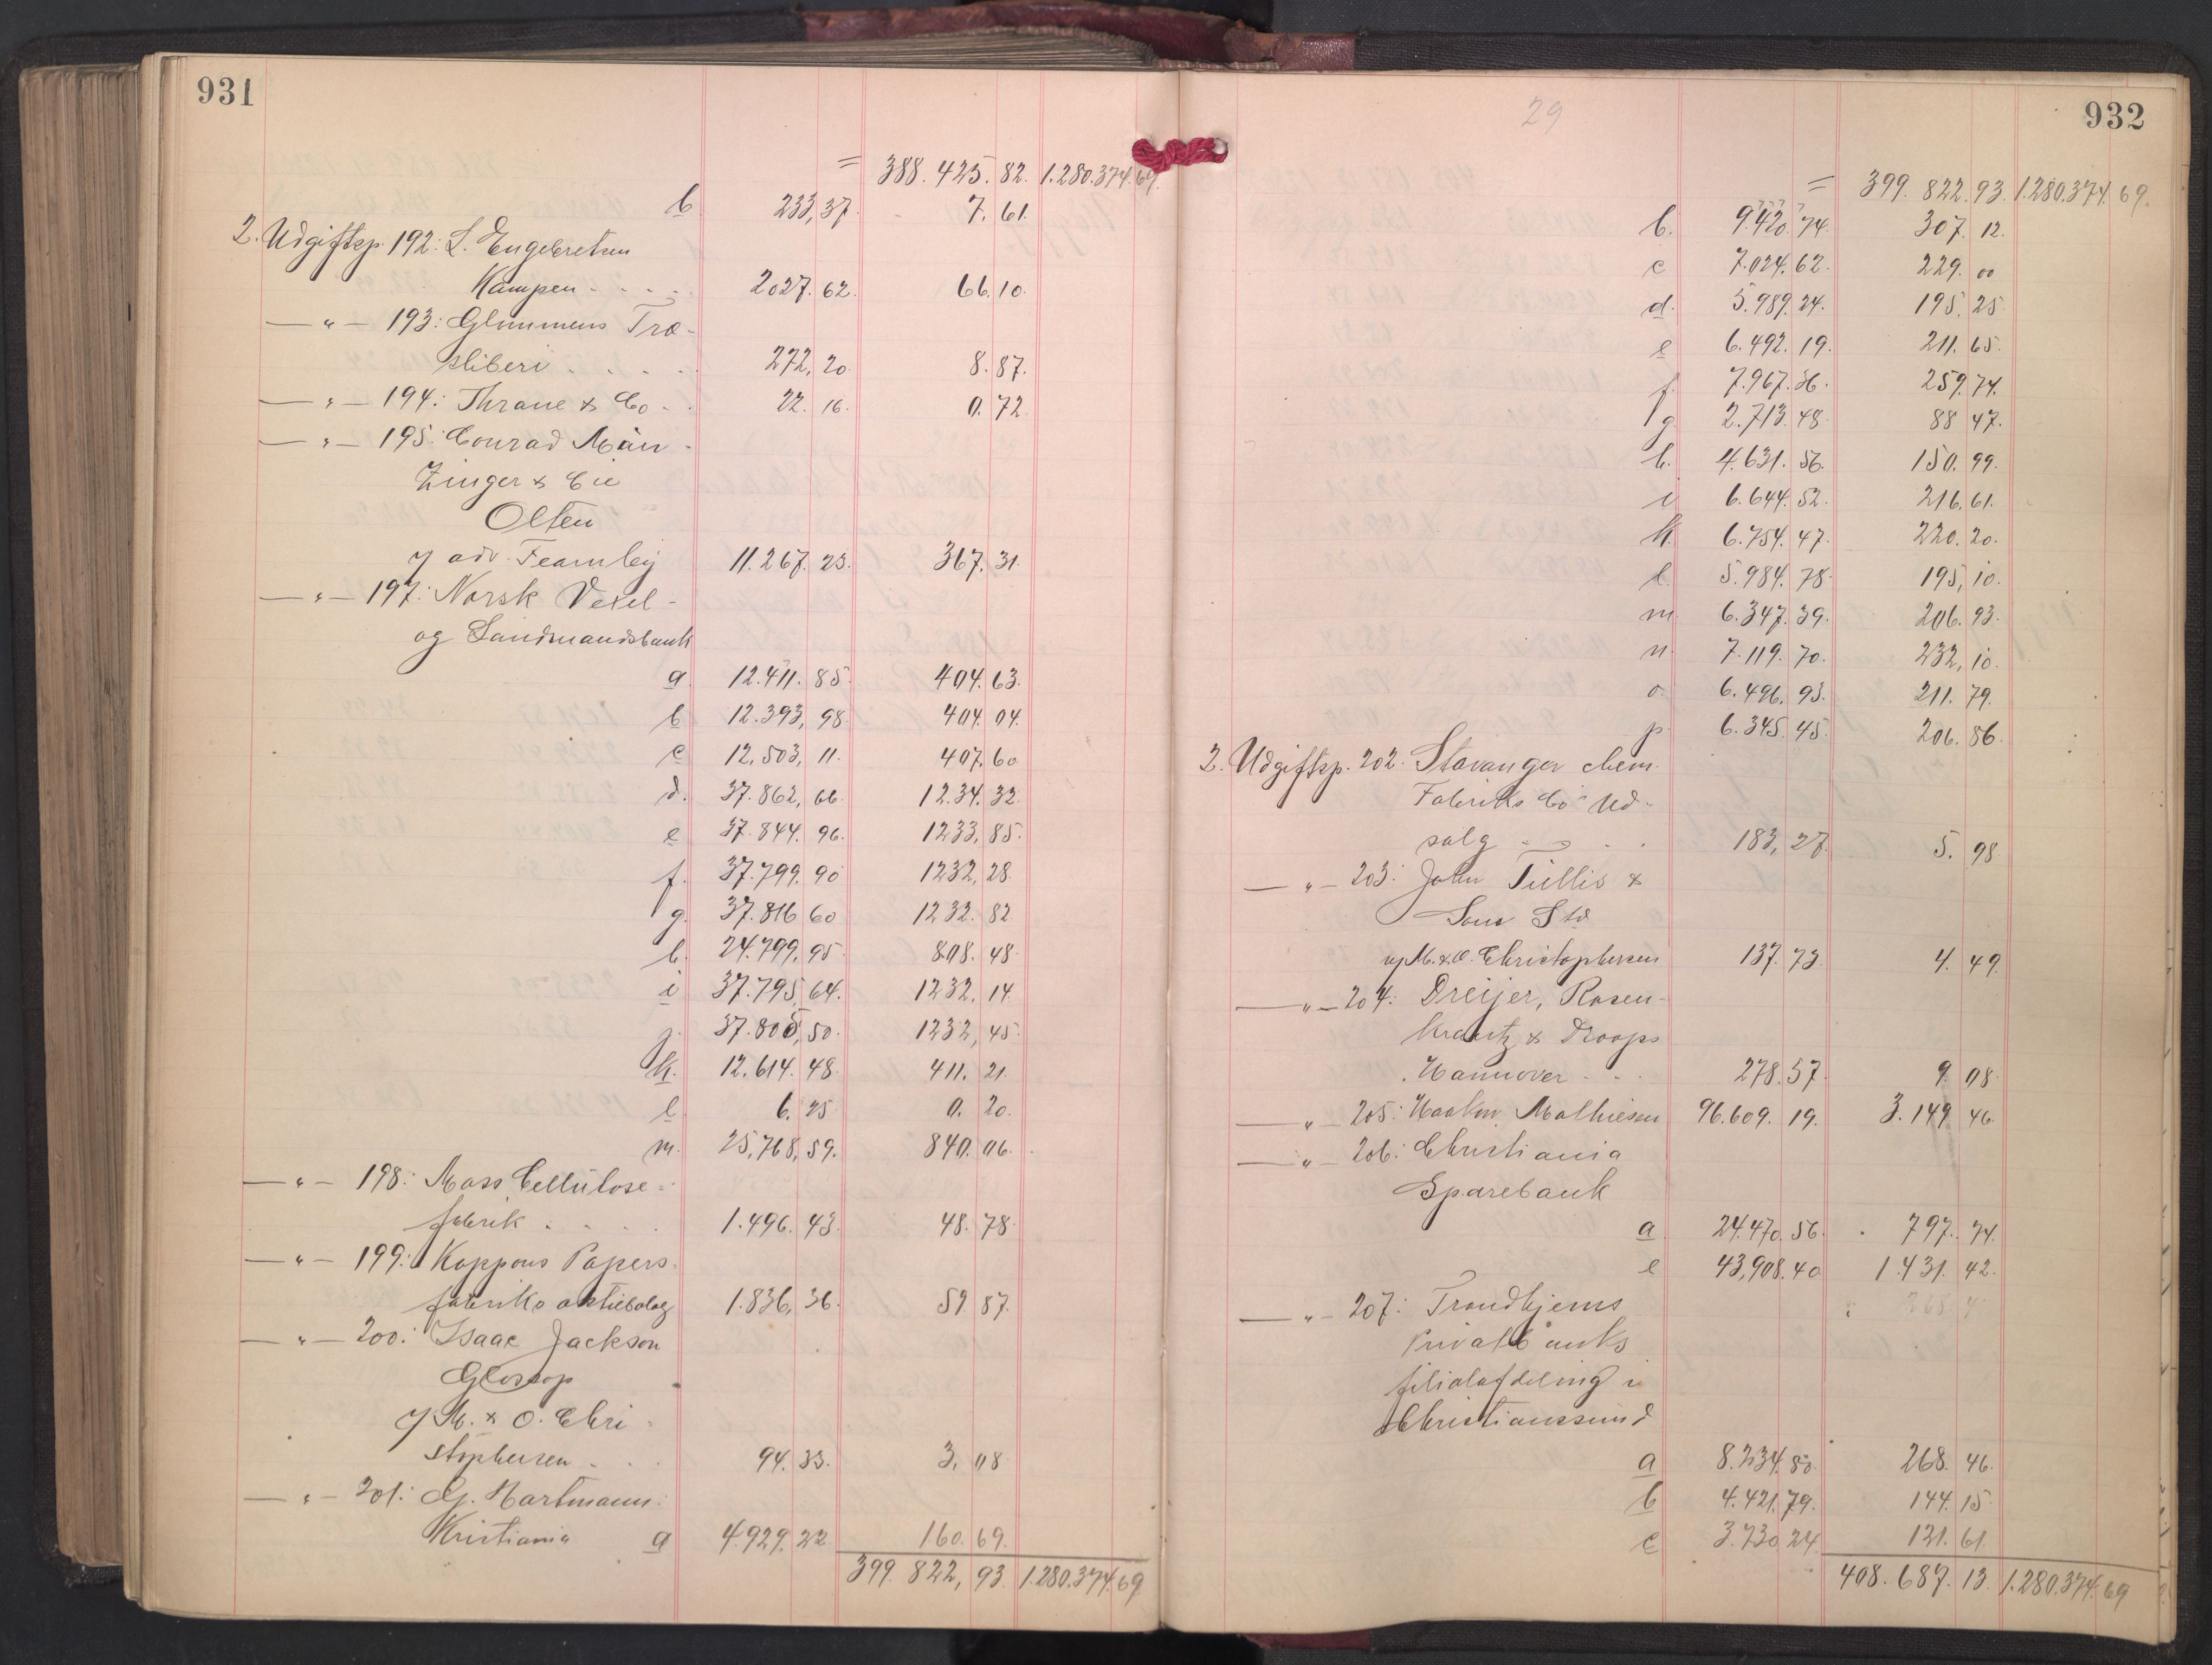 931
= 388.425.82. 1.280.374.69.
b 233,37. 7.61.
2. Udgiftsp. 192: L. Engebretsen
Kampen - - - - 2027.62. 66.10.
— " — 193: Glommens Træ-
sliberi . . . . . 272,20 8.87.
— " — 194: Thrane & Co - . 22.16. 0.72.
— " — 195: Conrad Mün-
zinger & Cie
Olten
v/ adv. Fearnley 11.267.23. 367.31.
— " — 197: Norsk Vexel-
og Landmandsbank
a 12.411.85. 404.63.
b 12.393,98. 404.04.
c 12,503,11. 407.60
d. 37.862,66. 1234.32.
e 37.844.96. 1233,85.
f. 37.799.90 1232,28.
g. 37.816 60 1232.82
h. 24.799,95. 808.48.
i 37.795,64. 1232.14.
j. 37.805,50. 1232,45.
k. 12.614.48. 411.21.
l. 6.25 0.20.
m. 25,768,59. 840.06.
— " — 198: Moss Cellulose-
fabrik . . . . 1.496.43. 48.78.
— " — 199: Koppoms Papers-
fabriks aktiebolag 1.836,36. 59.87.
— " — 200: Isaac Jackson
Glossop
v/ M. & O. Chri-
stophersen - . . 94.33. 3,08.
— " — 201: G. Hartmann:
Kristiania a 4.929.22 160.69.
399.822,93. 1.280.374.69.
932
29
= 399.822.93. 1.280.374.69.
b. 9.420.74. 307.12.
c 7.024.62. 229.00
d. 5.989.24. 195.25.
e 6.492.19. 211.65.
f. 7.967.36. 259.74.
g. 2.713.48. 88 47.
h. 4.631.56. 150.99.
i 6.644.52. 216,61.
k. 6.754.47. 220.20.
l. 5.984.78. 195,10.
m. 6.347.39. 206.93.
n. 7.119.70. 232,10.
o. 6.496,93. 211.79.
p. 6.345.45. 206.86.
2. Udgiftsp. 202. Stavanger chem.
Fabriks Co's Ud-
salg - - . . 183,27. 5.98
— " — 203: John Tullis &
Sons Ltd
v/ M. & O. Christophersen 137.73. 4.49.
— " — 204: Dreijer, Rosen-
krantz & Droops
Hannover - . . 278.57. 9.08.
— " — 205: Haakon Mathiesen 96.609.19. 3.149 46.
— " — 206: Christiania
Sparebank
a 24.470.56. 797.74.
e 43,908.40 1.431.42.
— " — 207: Trondhjems
Privatbanks
filialafdeling i
Christianssund
a 8.234.80. 268.46.
b 4.421.79. 144.15.
c 3.730 24. 121.61.
408.687.13. 1.280.374.69